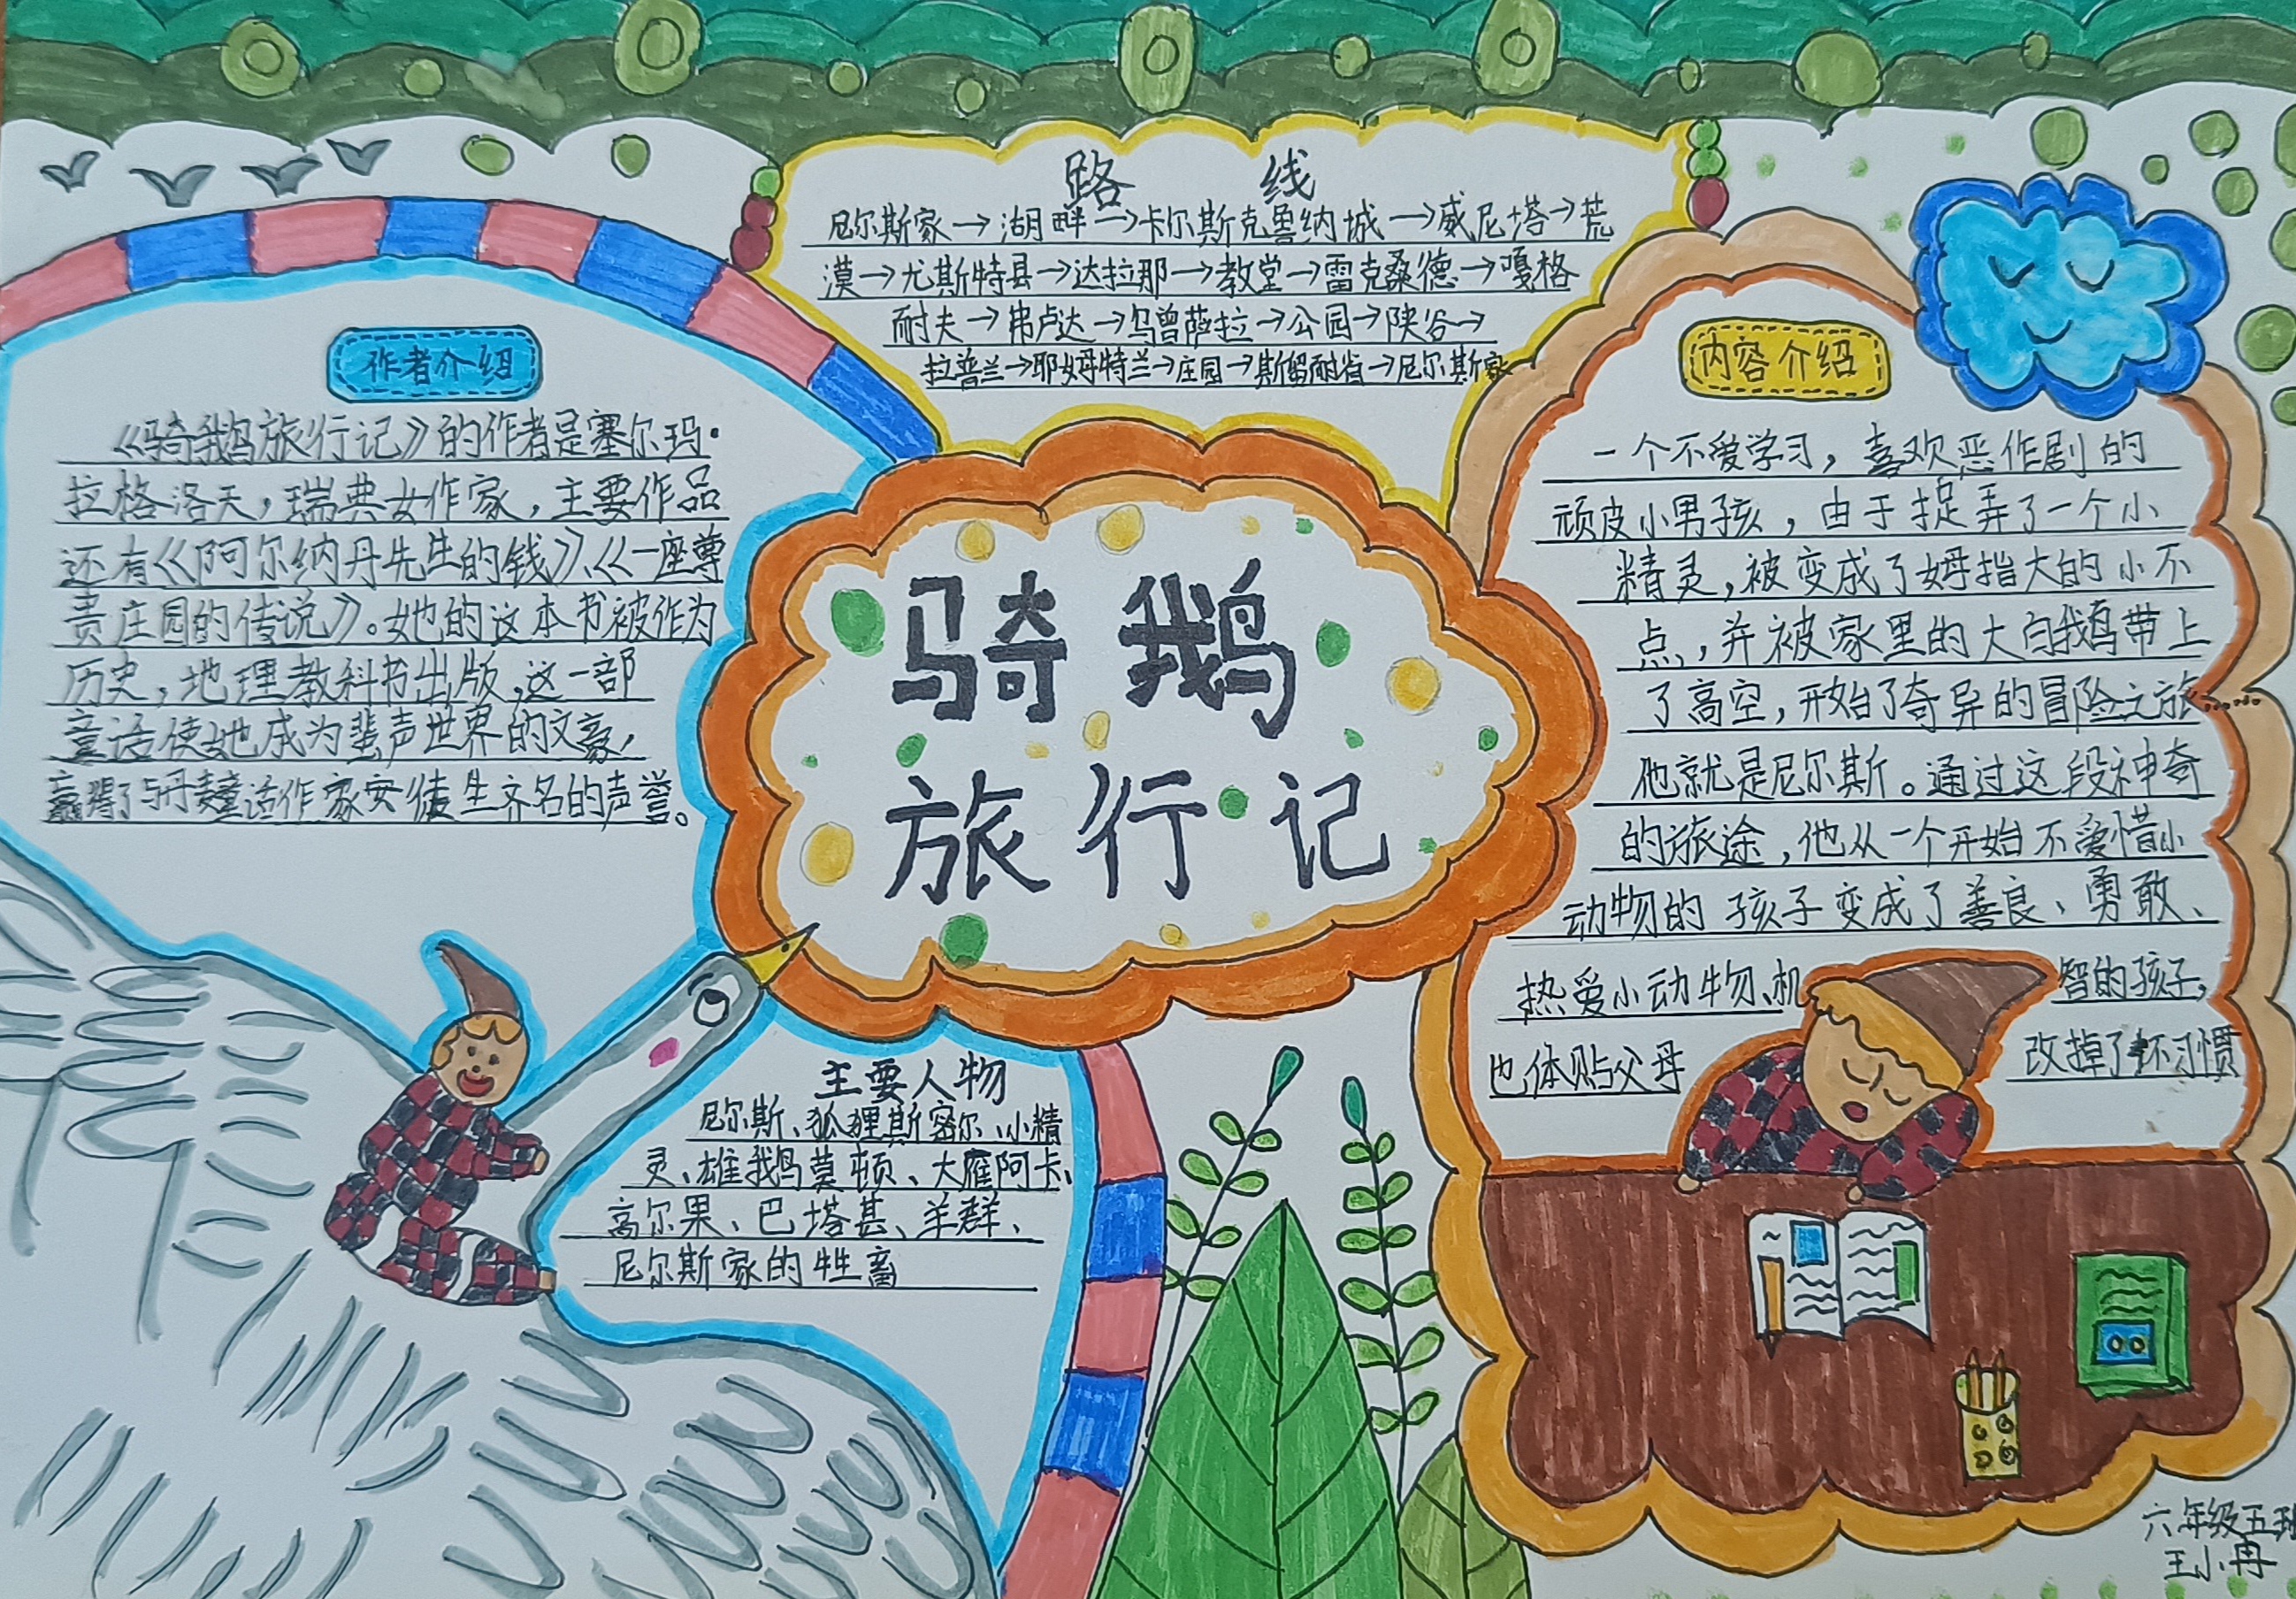 路 线
尼尔斯家→湖畔→卡尔斯克鲁纳城→威尼塔→荒
漠→尤斯特县→达拉那→教堂→雷克桑德→嘎格
耐夫→弗卢达→乌曾萨拉→公园→陕谷→
拉普兰→耶姆特兰→庄园→斯留耐省→尼尔斯家
作者介绍
《骑鹅旅行记》的作者是塞尔玛·
拉格洛夫，瑞典女作家，主要作品
还有《阿尔纳丹先生的钱》、《一座尊
贵庄园的传说》。她的这本书被作为
历史，地理教科书出版，这一部
童话使她成为蜚声世界的文豪，
赢得了与丹麦童话作家安徒生齐名的声誉。
骑鹅
旅行记
内容介绍
一个不爱学习，喜欢恶作剧的
顽皮小男孩，由于捉弄了一个小
精灵，被变成了姆指大的小不
点，并被家里的大白鹅带上
了高空，开始了奇异的冒险之旅……
他就是尼尔斯。通过这段神奇
的旅途，他从一个开始不爱惜小
动物的孩子变成了善良、勇敢、
热爱小动物、机智的孩子，
也体贴父母 改掉了坏习惯
主要人物
尼尔斯、狐狸斯密尔、小精
灵、雄鹅莫顿、大雁阿卡、
高尔果、巴塔甚、羊群、
尼尔斯家的牲畜
六年级五班
王小冉